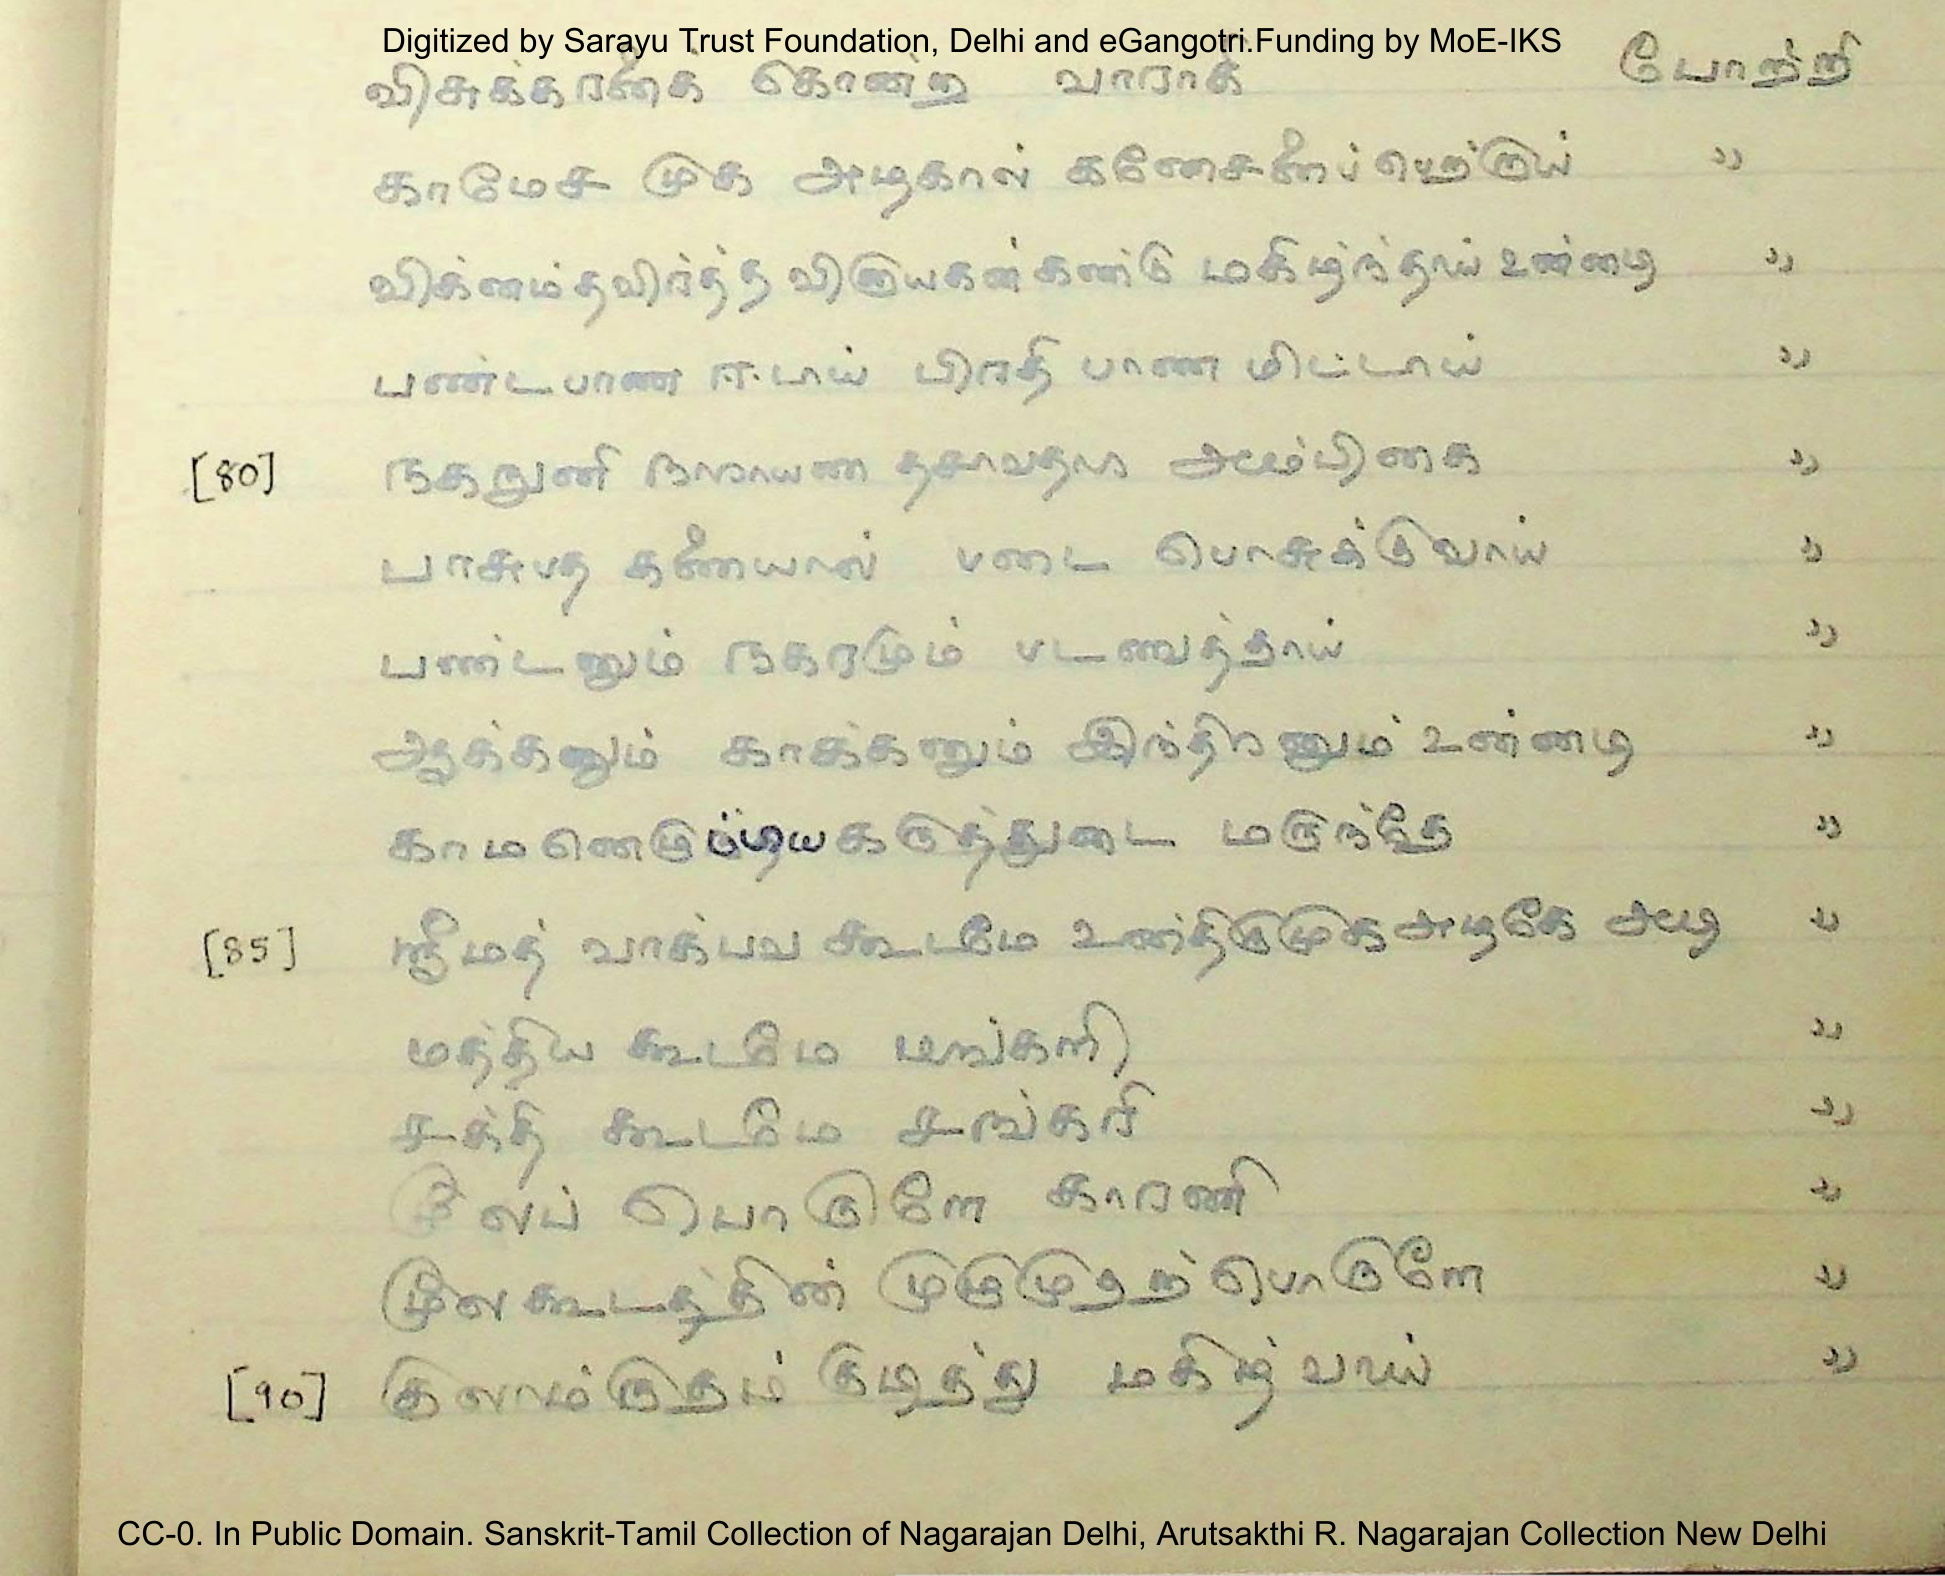 Digitized by Sarayu Trust Foundation, Delhi and eGangotri.Funding by MoE-IKS
விசுக்கரனைக் கொன்ற வாராகி போற்றி
காமேச முக அழகால் கணேசனைப் பெற்றாய் "
விக்னம்தவிர்த்த விநாயகன்கண்டு மகிழ்ந்தாய் உண்மை "
பண்டபாண ஈடாய் பிரதி பாண மிட்டாய் "
[80] நகநுனி நாராயண தசாவதார அம்பிகை "
பாசுபத கணையால் படை பொசுக்குவாய் "
பண்டனும் நகரமும் "
ஆக்கனும் காக்கனும் இந்திரனும் "
கருத்துடை மருந்தே "
[85] ஸ்ரீமத் வாக்பவ கூடமே உன்திருமுக அழகே "
மத்திய கூடமே மங்களி "
சக்தி கூடமே சங்கரி "
மூலப் பொருளே காரணி "
மூலகூடத்தின் முழுமுதற்பொருளே "
[90] குலாம்ருதம் குடித்து மகிழ்வாய் "
CC-0. In Public Domain. Sanskrit-Tamil Collection of Nagarajan Delhi, Arutsakthi R. Nagarajan Collection New Delhi